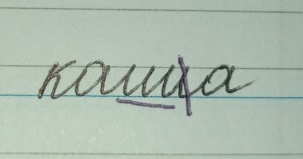 каша